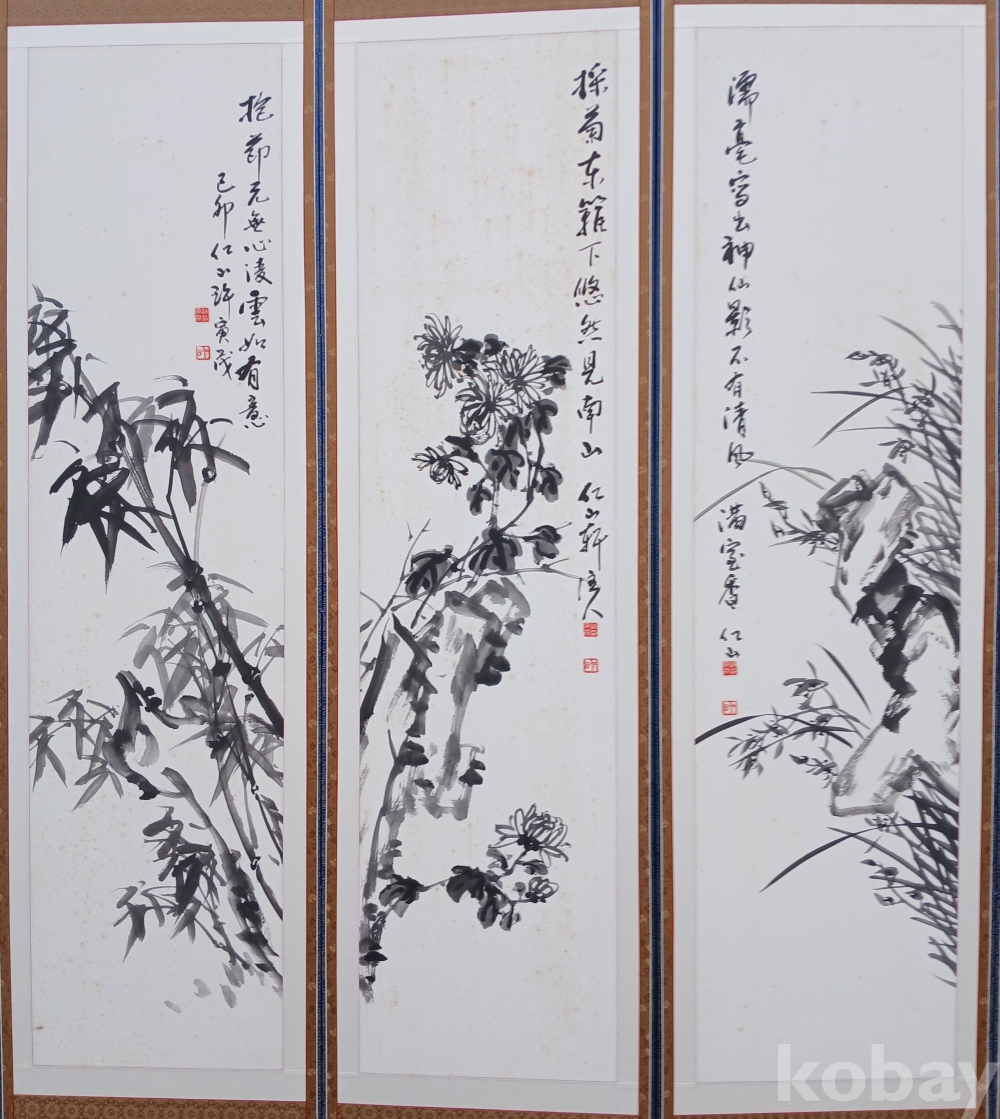 濡毫寫出神仙影不有清風
滿室香 仁山
採菊東籬下悠然見南山 仁山軒主人
抱節元無心凌雲如有意
己卯 仁山 許寅茂
kobay